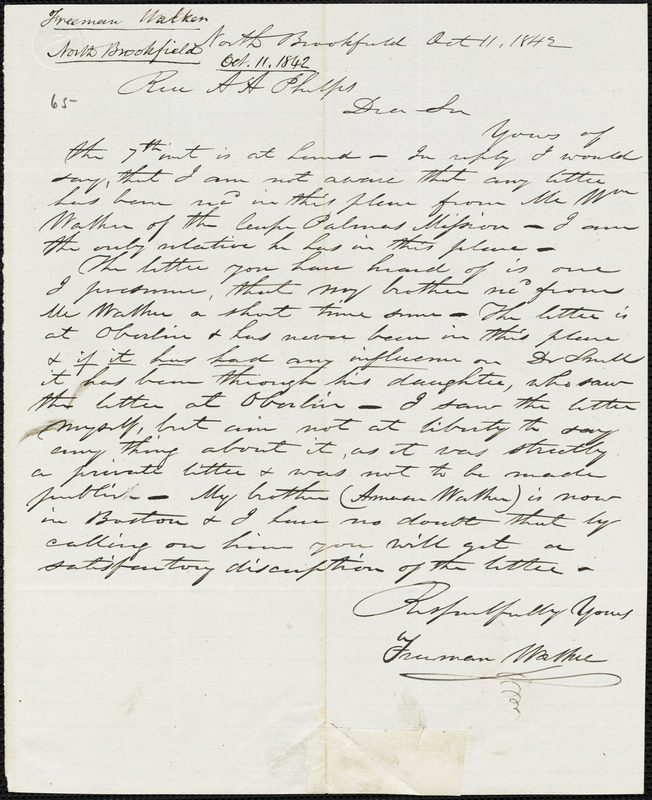 Freeman Walker
North Brookfield
Oct. 11. 1842
North Brookfield Oct 11, 1842
65
Rev A A Phelps
Dear Sir
Yours of
the 7th inst is at hand – In reply I would
say, that I am not aware that any letter
has been recd in this place from Mr Wm
Walker of the Cape Palmas Mission – I am
the only relative he has in this place –
The letter you have heard of is one
I presume, that my brother recd from
Mr Walker a short time since – The letter is
at Oberlin & has never been in this place
& if it has had any influence on Dr Snell
it has been through his daughter, who saw
the letter at Oberlin – I saw the letter
myself, but am not at liberty to say
any thing about it, as it was strictly
a private letter & was not to be made
public – My brother (Amasa Walker) is now
in Boston & I have no doubt that by
calling on him you will get a
satisfactory discription of the letter –
Respectfully Yours
Freeman Walker